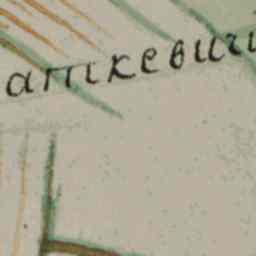 аткевичи